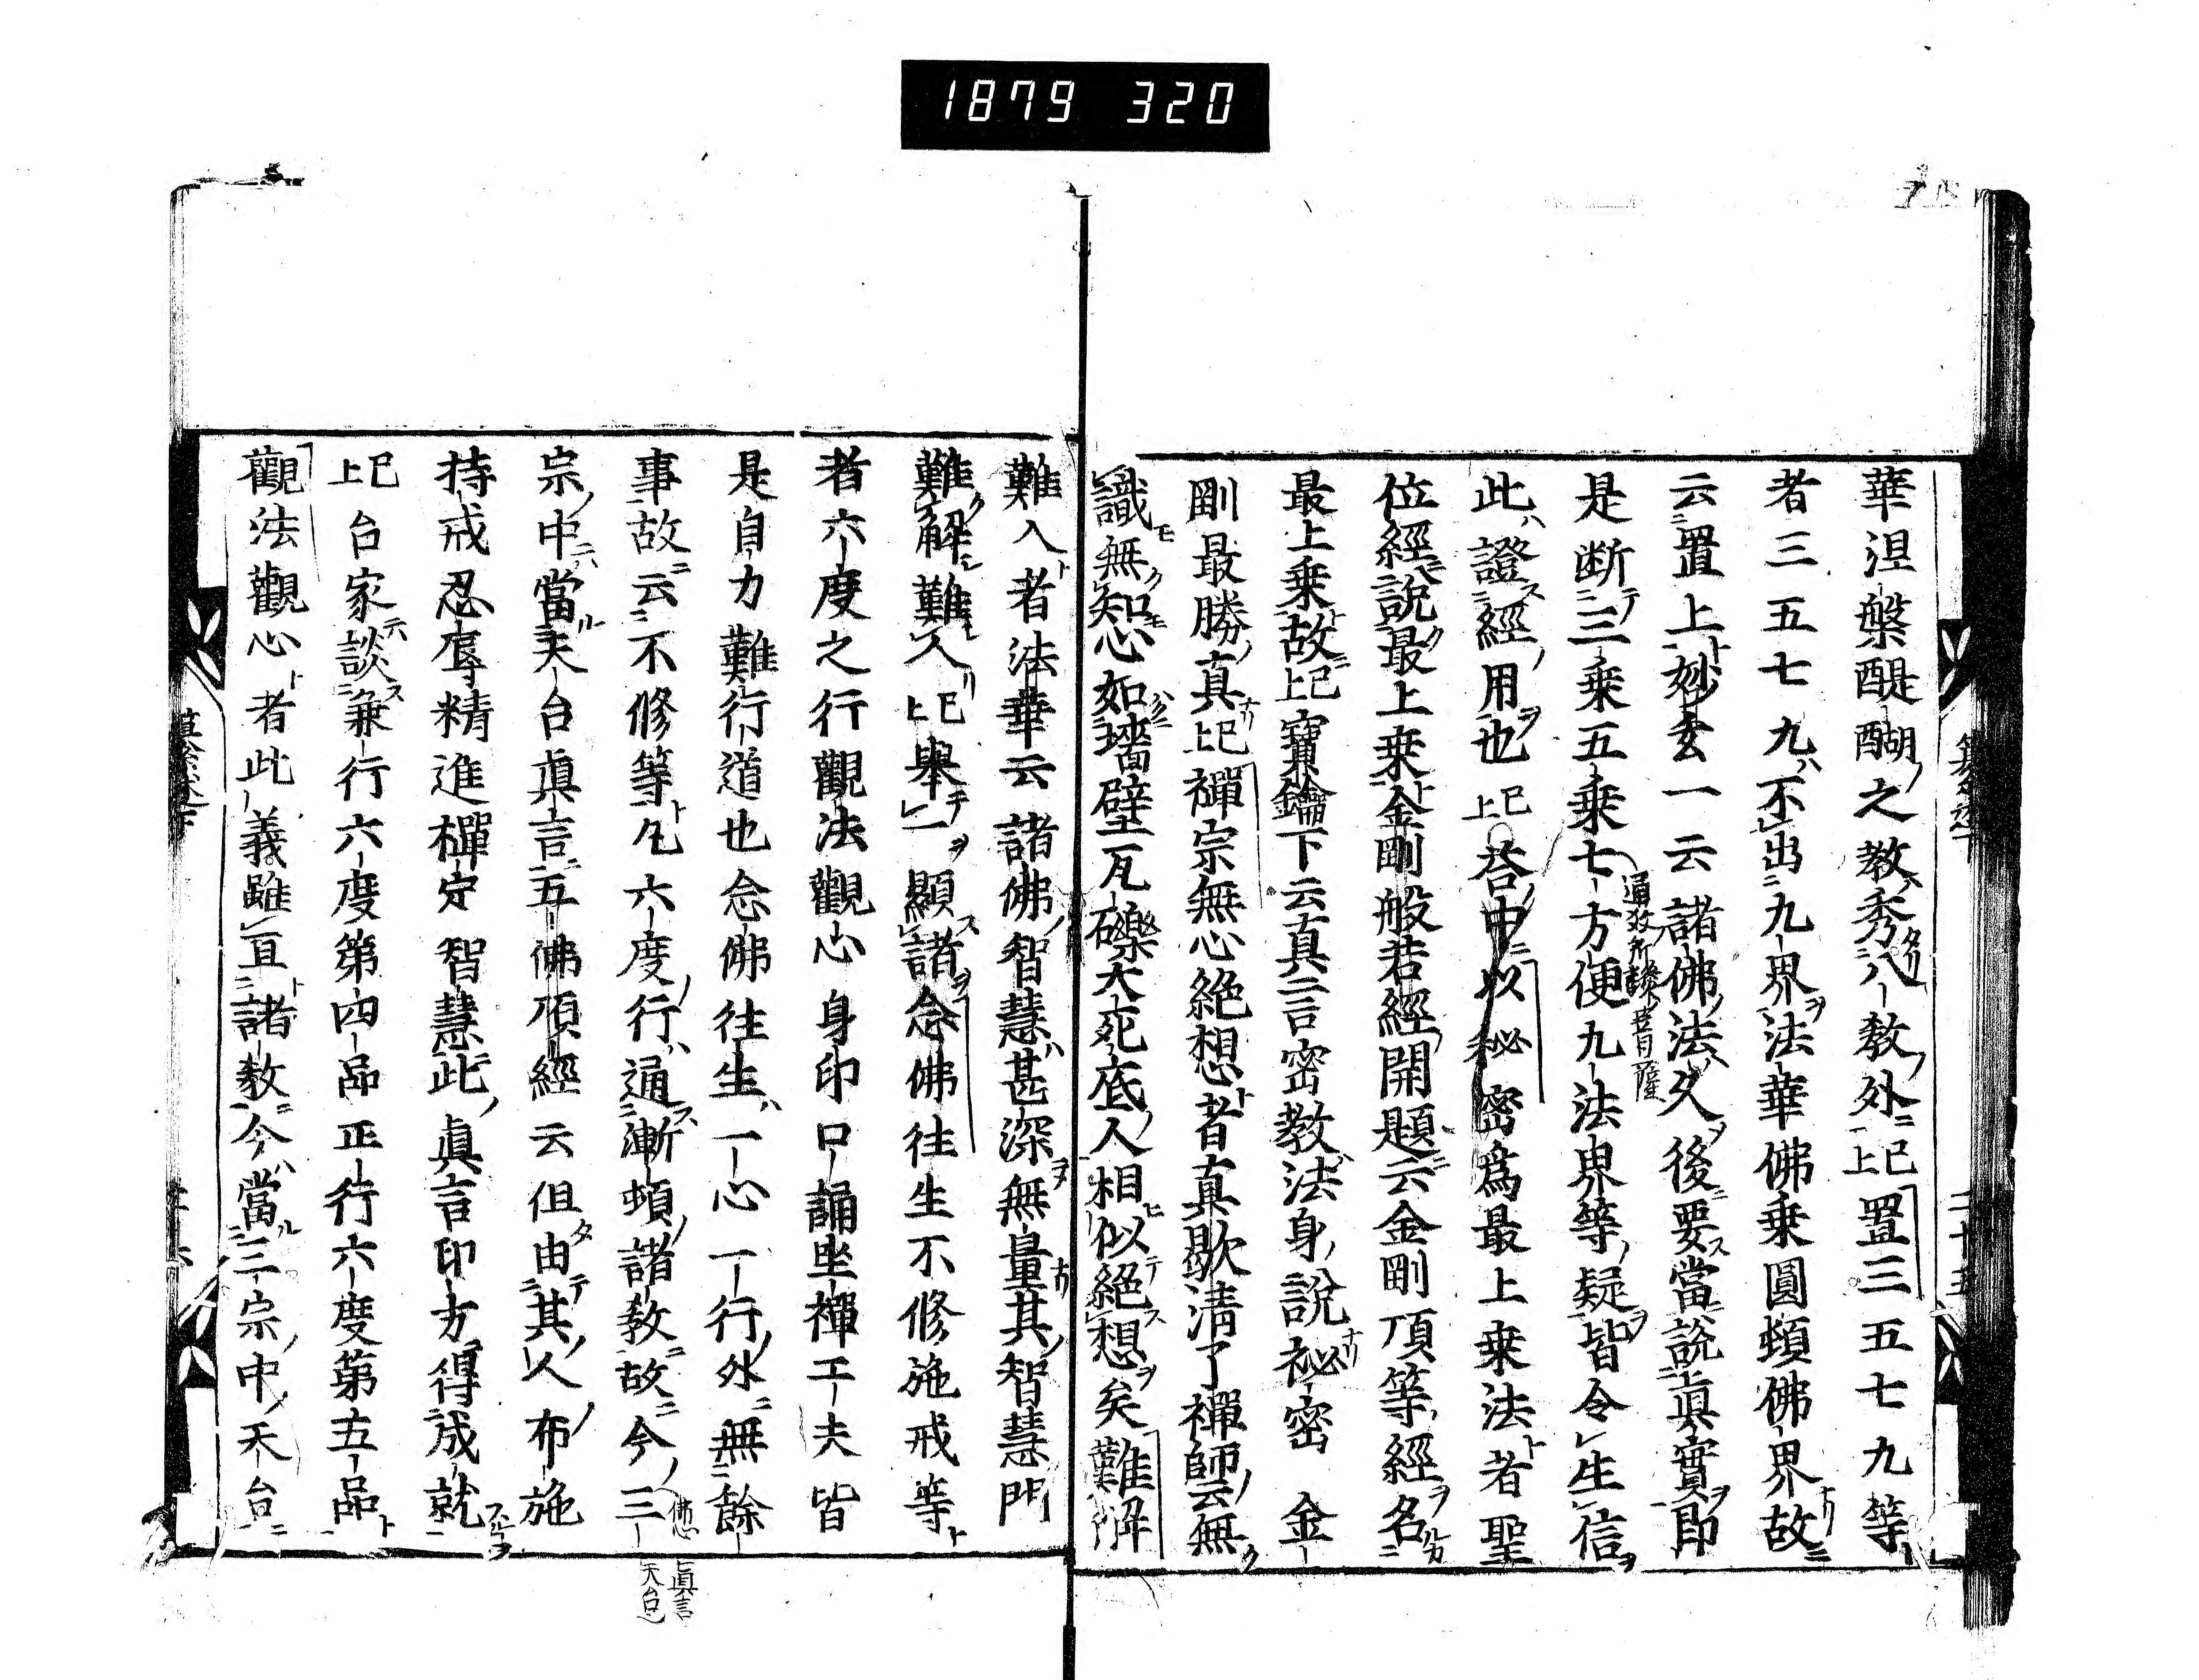 1879 320
華涅槃醍醐之教秀八教外已上置三五七九等
者三五七九不出九界法華佛乗圓頓佛界故
云置上妙玄一云諸佛法久後要當説眞實即
是断三乗五乗七方便九法界等疑皆令生信
此證經用也已上荅中以秘密爲最上乗法者聖
位經説最上乗金剛般若經開題云金剛頂等經名
最上乗故已上寶鑰下云真言密教法身説秘密金
剛最勝真已上禪宗無心絶想者真歇淸了禪師云無
識無知心如墻壁瓦礫大死底人相似絶想矣難解
難入者法華云諸佛智慧甚深無量其智慧門
難解難入已上擧一顯諸念佛往生不修施戒等
者六度之行觀法觀心身印口誦坐禪工夫皆
是自力難行道也念佛往生一心一行外無餘
事故云不修等凡六度行通漸頓諸教故今三
佛心
眞言
天台
宗中當天台眞言五佛頂經云但由其人布施
持戒忍辱精進禪定智慧此眞言印方得成就
已上台家談兼行六度第四品正行六度第五品
觀法觀心者此義雖亘諸教今當三宗中天台